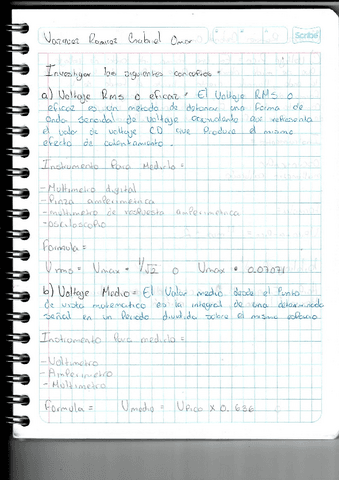 Vazquez Ramirez Gabriel Omar
Scribe
Investigar los siguientes conceptos =
a) Voltaje Rms o eficaz = El Voltaje RMS o
eficaz es un metodo de denotar una forma de
onda senoidal de voltaje que representa
el valor de voltaje CD que Produce el mismo
efecto de calentamiento.
Instrumento Para Medirlo =
- Multimetro digital
- Pinza amperimetrica
- multimetro de respuesta amperimetrica
- osciloscopio
Formula =
Vrms = Vmax = 1/√2 o Vmax * 0.07071
b) Voltaje Medio = El Valor medio desde el Punto
de vista matematico es la integral de una determinada
señal en un Periodo dividido sobre el mismo periodo
Instrumento Para medirlo =
- Voltimetro
- Amperimetro
- Multimetro
Formula = Vmedio = Vpico x 0.636